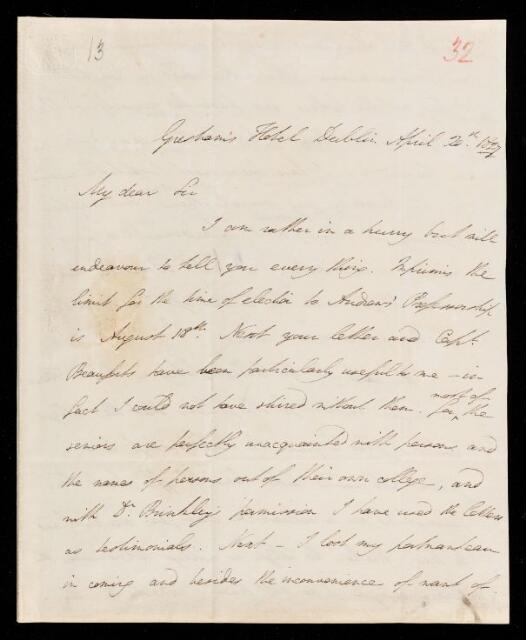 13
32
Gresham's Hotel Dublin April 20th 1827
My dear Sir
I am rather in a hurry but will
endeavour to tell you every thing. Imprimis the
limit for the time of election to Andrews' Professorship
is August 18th. Next your letter and Capt.
Beauforts have been particularly useful to me - in
fact I could not have stirred without them. For, most of the
seniors are perfectly unacquainted with persons and
the names of persons out of their own college, and
with Dr. Brinkley's permission I have used the letters
as testimonials. Next - I lost my portmanteau
in coming and besides the inconvenience of want of